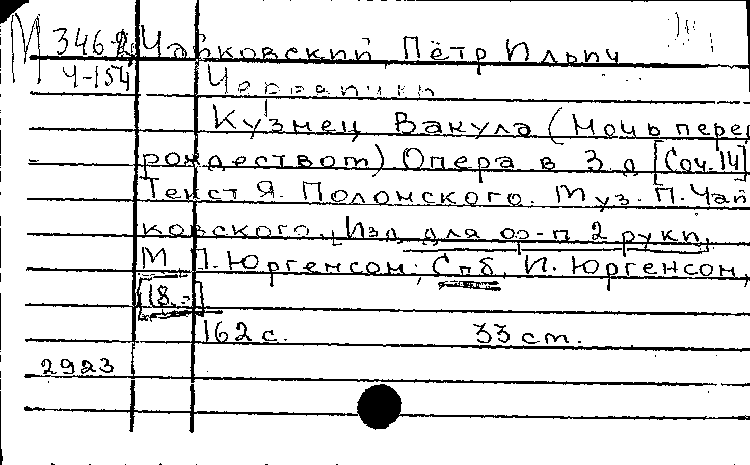 М 346-2 Чайковский, Пётр Ильич
Ч-154 Черевички
Кузнец Вакула (Ночь перед
рождеством) Опера в 3 д [Соч. 14]
Текст Я. Полонского. Муз. П. Чай
ковского. [Изд. для ф-п 2 руки]
М П. Юргенсон; Спб, И. Юргенсон,
[18.-]
162 с. 33 ст.
2923